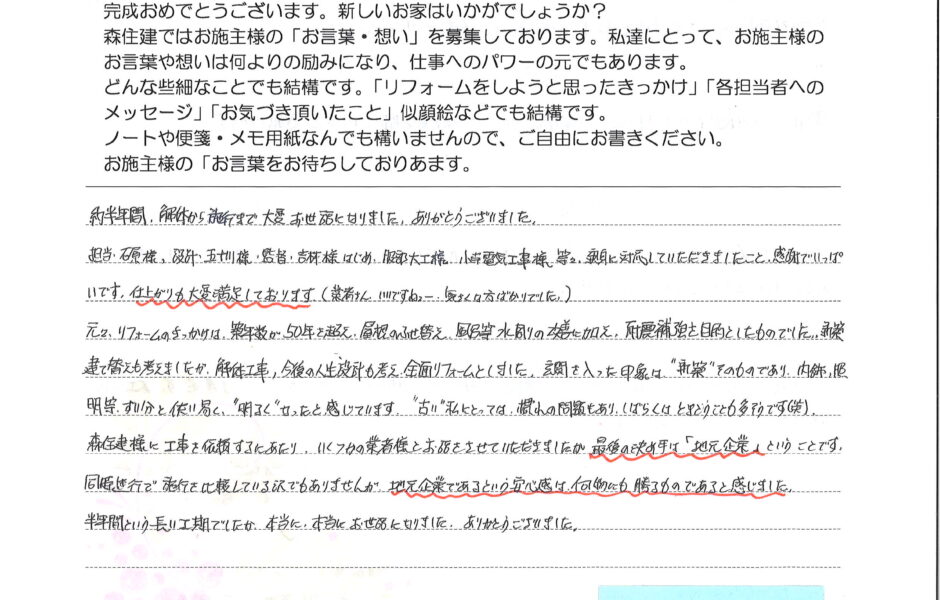 完成おめでとうございます。新しいお家はいかがでしょうか？
森住建ではお施主様の「お言葉・想い」を募集しております。私達にとって、お施主様の
お言葉や想いは何よりの励みになり、仕事へのパワーの元でもあります。
どんな些細なことでも結構です。「リフォームをしようと思ったきっかけ」「各担当者への
メッセージ」「お気づき頂いたこと」似顔絵などでも結構です。
ノートや便箋・メモ用紙なんでも構いませんので、ご自由にお書きください。
お施主様の「お言葉をお待ちしておりあます。
約半年間、解体から施行まで大変お世話になりました。ありがとうございました。
担当・石原様、設計・五十川様・監督・吉村様はじめ、服部大工様、小寺電気工事様、等々、親身に対応していただきましたこと、感謝でいっぱ
いです。仕上がりも大変満足しております（業者さん、いいですねー、気さんな方ばかりでした。）
元々、リフォームのきっかけは、築年数が50年を超え、屋根のふせ替え、風呂等水廻りの改善に加え、耐震補強を目的としたものでした。新築
建て替えも考えましたが、解体工事、今後の人生設計も考え、全面リフォームとしました。玄関を入った印象は“新築”そのものであり、内飾、照
明等、ずい分と使い易く、“明るく”なったと感じています。“古い”私にとっては、慣れの問題もあり、しばらくはとまどうことも多そうです(笑)。
森住建様に工事を依頼するにあたり、いくつかの業者様とお話をさせていただきましたが最後の決め手は「地元企業」ということです。
同時進行で施行を比較している訳でもありませんが、地元企業であるという安心感は、何物にも勝るものであると感じました。
半年間という長い工期でしたが、本当に、本当にお世話になりました。ありがとうございました。